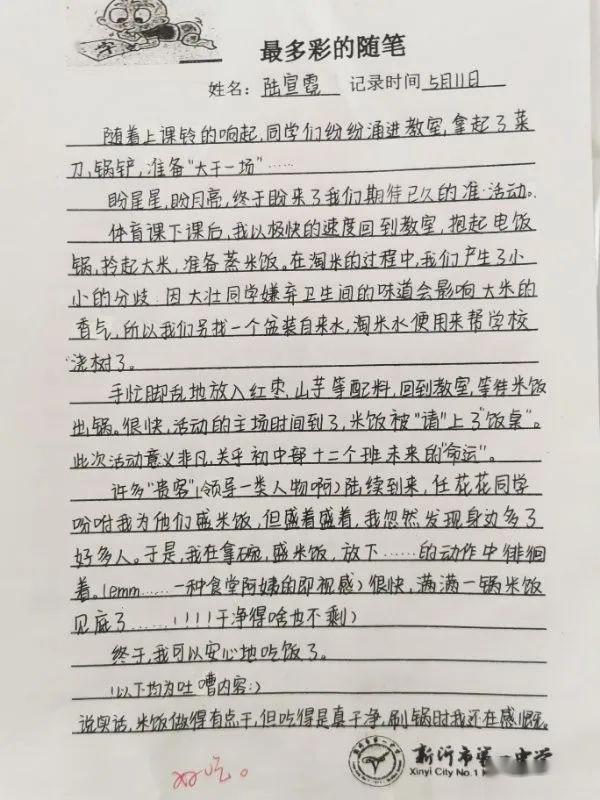 最多彩的随笔
姓名：陆宣霓 记录时间 5月11日
随着上课铃的响起，同学们纷纷涌进教室，拿起了菜
刀，锅铲，准备"大干一场"……
盼星星，盼月亮，终于盼来了我们期待已久的准·活动。
体育课下课后，我以极快的速度回到教室，抱起电饭
锅，拎起大米，准备蒸米饭。在淘米的过程中，我们产生了小
小的分歧：因大壮同学嫌弃卫生间的味道会影响大米的
香气，所以我们另找一个盆装自来水，淘米水便用来帮学校
浇树了。
手忙脚乱地放入红枣、山芋等配料，回到教室，等待米饭
出锅。很快，活动的主场时间到了，米饭被"请"上了"饭桌"。
此次活动意义非凡，关乎初中部十二个班未来的"命运"。
许多"贵客"(领导一类人物啊)陆续到来，任花花同学
吩咐我为他们盛米饭，但盛着盛着，我忽然发现身边多了
好多人。于是，我在拿碗，盛米饭，放下……的动作中徘徊
着。(emm……一种食堂阿姨的即视感)很快，满满一锅米饭
见底了……(!!!干净得啥也不剩)
终于，我可以安心地吃饭了。
(以下均为吐嘈内容:)
说实话，米饭做得有点干，但吃得是真干净，刷锅时我还在感慨。
好吃。
新沂市第一中学
Xinyi City No.1